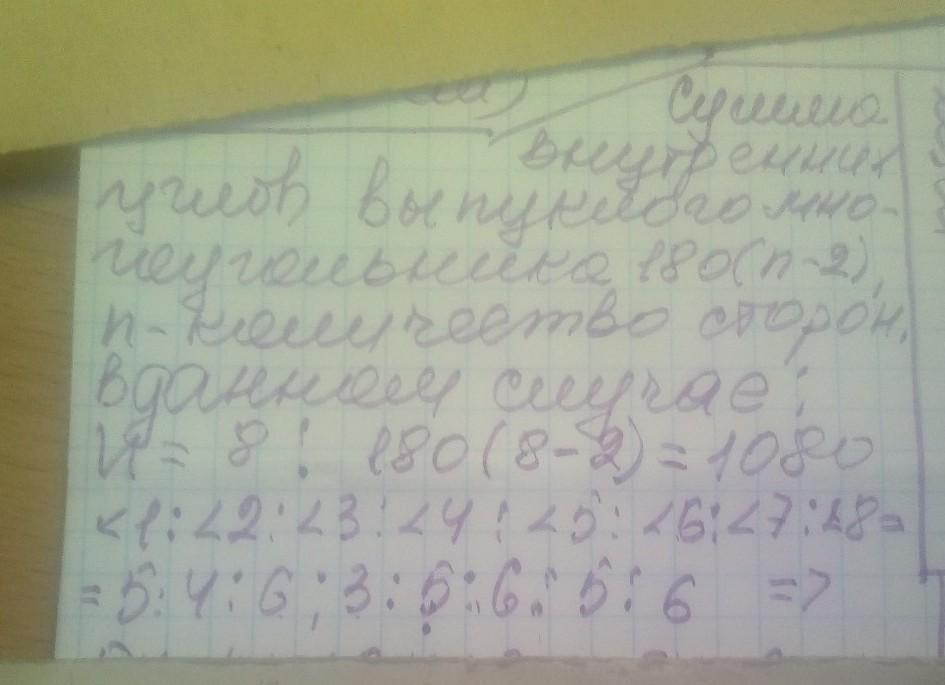 Сумма
внутренних
углов выпуклого мно-
гоугольника 180(n-2),
n - количество сторон.
в данном случае:
n = 8 : 180(8-2)=1080
<1:<2:<3:<4:<5:<6:<7:<8=
=5:4:6:3:5:6:5:6 =>